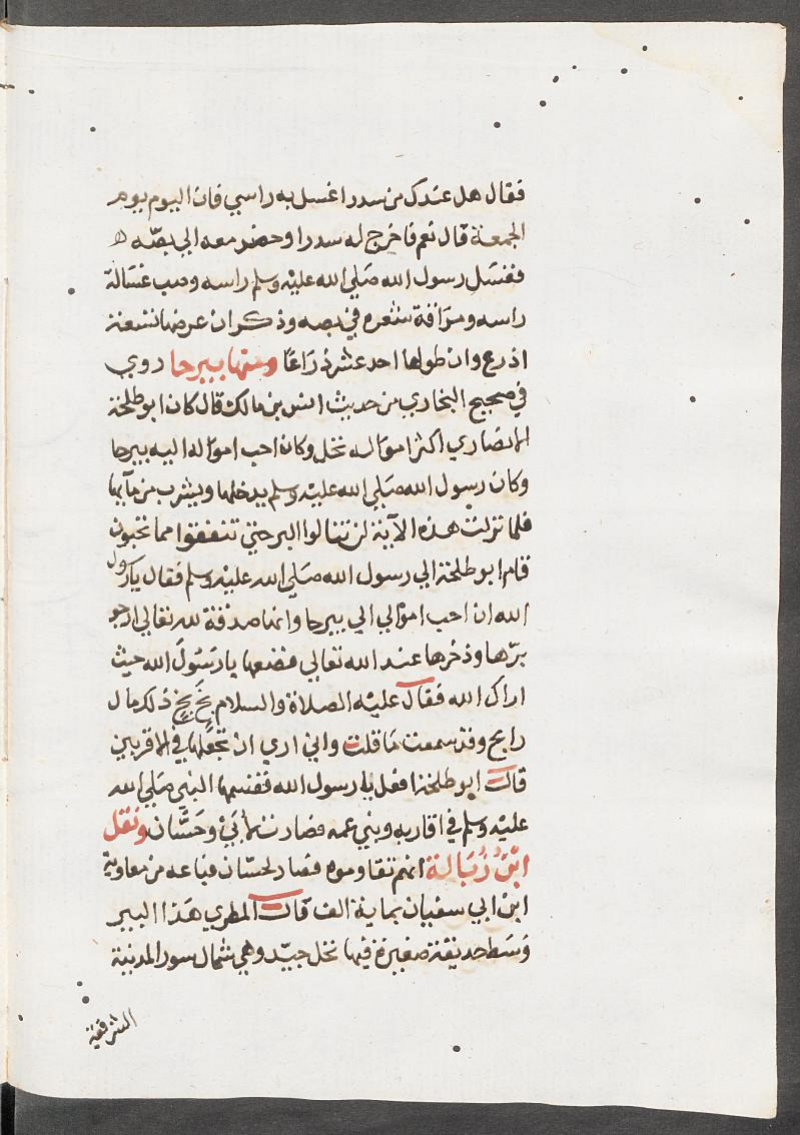 فقال هل عندك من سدر اغسل به راسي فان اليوم يوم
الجمعة قال نعم فاخرج له سدرا وحضر معه الي بصّه
فغسَل رسول الله صَلي الله عليْه وسلم راسه وصب غسَالة
راسه ومزاقة شعره في بصه وذكر ان عرضها تسعة
اذرع وان طولها احد عشر ذرَاعًا ومنها بيرحا روي
في صحيح البخاري من حديث انس بن مالك قال كان ابو طلحة
الانصَاري اكثر امواله نخل وكان احب امواله اليه بيرحا
وكان رسول الله صَلي الله عليْه وسلم يدخلها ويشرب من مآيها
فلما نزلت هذه الآية لن تنالوا البر حتي تنفقوا مما تحبون
قام ابو طلحة الي رسول الله صَلي الله عليْه وسلم فقال يارسول
الله ان احب اموَالي الي بيرحا وانها صدقة لله تعالي ارجو
برّها وذخرها عند الله تعالي فضعها يا رسُولَ الله حيث
اراك الله فقال عليْه الصلاة والسلام بَخ بَخ ذلك مال
رابح وقد سمعت مَا قلت واني اري ان تجعَلها في الاقربين
قال ابو طلحة افعل يا رسول الله فقسمها النبي صَلي الله
عليْه وسلم في اقاربه وبني عمه فصارت لأبَيّ وحَسَّان ونقل
ابْن زُبَالة انهم تقاوموه فصار لحسَّان فباعه من معاوية
ابن ابي سفيان بماية الف قال المطري هَذا البير
وسَط حديقة صغيرة فيها نخل جيّد وهي شمال سور المدينة
الشرقية